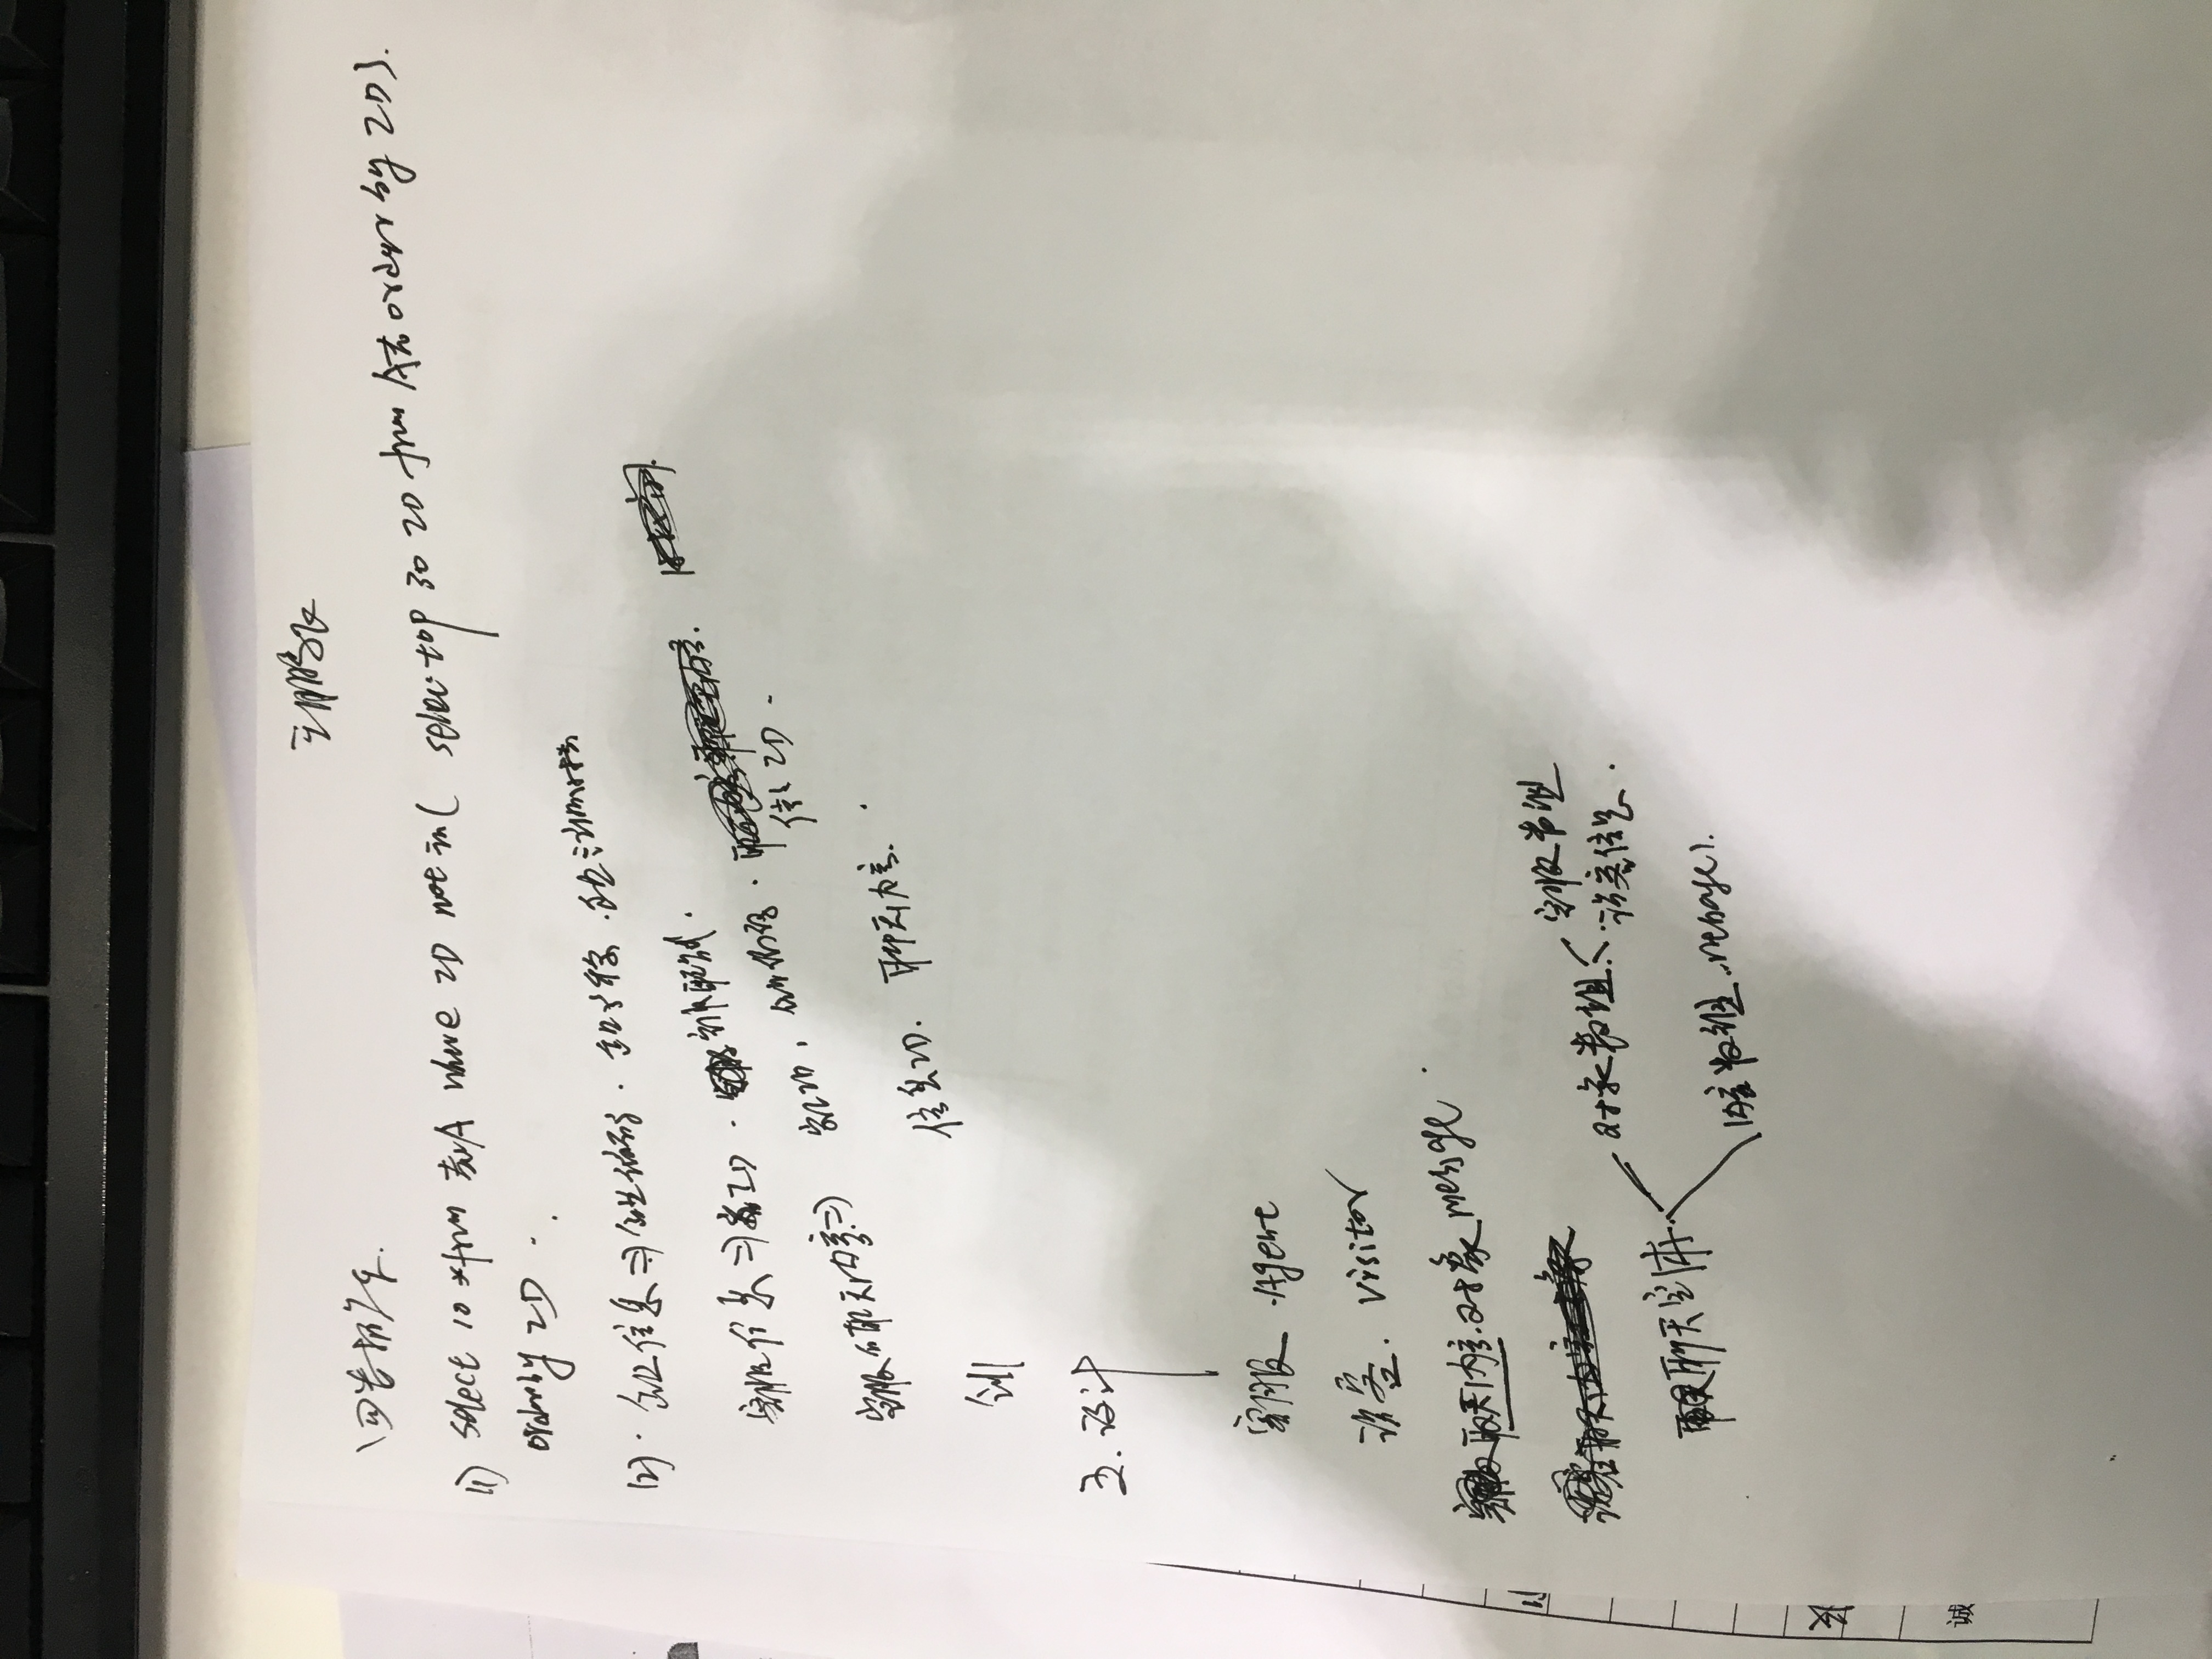 四、数据库.
(1) select 10 * from 表A where ID not in ( select top 30 ID from A表 order by ID ).
order by ID .
(2) . 企业信息 ⇒ 企业编码 . 企业名称 . 企业注册时间
客服信息 ⇒ 客ID .
客服的聊天内容 ⇒ 客ID , 企业编码 .
信息ID .
信息ID . 聊天内容 .
企业
五. 设计
客服 . Agent
访客 . Visitor
聊天内容 . 对象 message .
对象数组 客服数组
访客信息 .
聊天实体
内容数组
诚